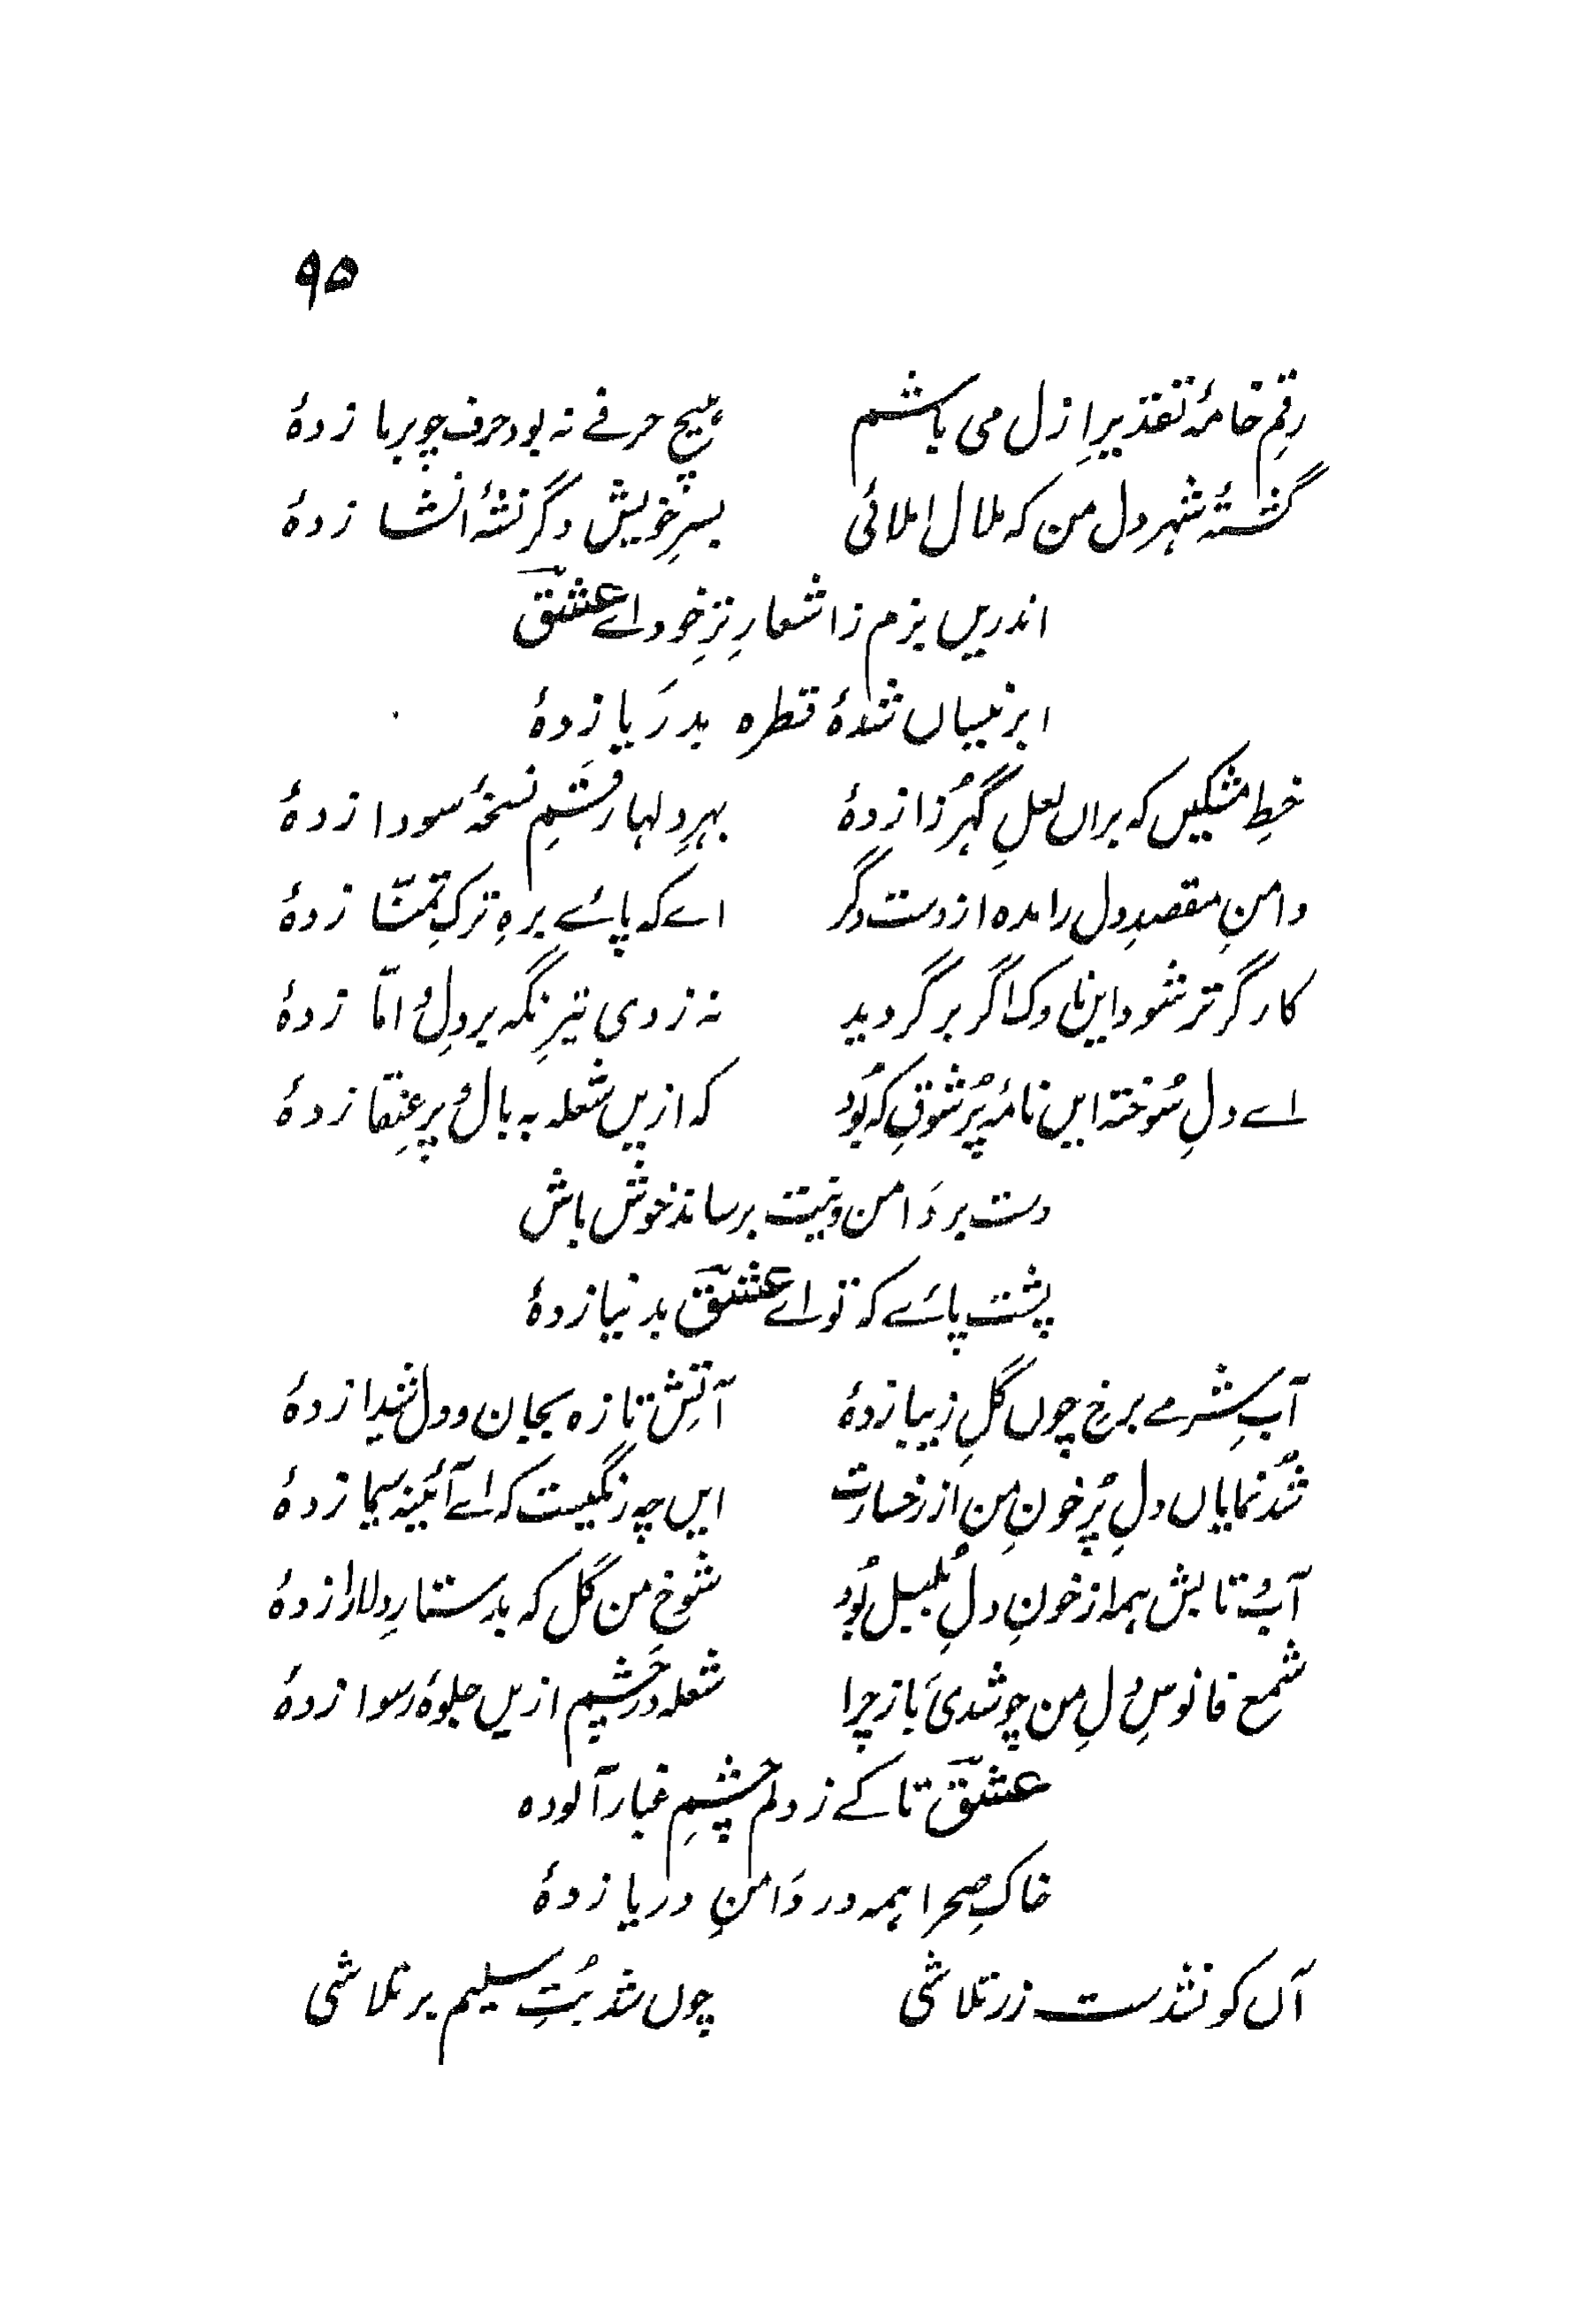 ۹۵
رقمِ خامۂ تقدیرِ ازل می باشم ہیچ حرفے نہ بود حرف چو برما زدۂ
گشتۂ شہر دل من کہ ملال املائی بسرِ خویش دگر نشۂ انشا زدۂ
اندریں بزم ز اشعارِ ترِ خود اے عشقؔ
ابر نیساں شدۂ قطرہ بدریا زدۂ
خطِ مشکیں کہ براں لعلِ گہر زا زدۂ بہرِ دلہا رقمِ نسخۂ سودا زدۂ
دامنِ مقصدِ دل را مدہ از دست دگر اے کہ پائے برہِ ترکِ تمنّا زدۂ
کارگر تر شود این ناوک اگر برگردید نہ زدی تیرِ نگہ بر دل و امّا زدۂ
اے دلِ سُوختہ ایں نامۂ پُر شوقِ کہ بُود کہ ازیں شعلہ بہ بال و پرِ عنقا زدۂ
دست بر دَامن و نیت برساند خوش باش
پشت پائے کہ تو اے عشقؔ بدنیا زدۂ
آبِ شرمے برخ چوں گلِ زیبا زدۂ آتشِ تازہ بجان و دل شیدا زدۂ
شُد نمایاں دلِ پُر خونِ من از رخسارت ایں چہ رنگیست کہ اے آئینہ سیما زدۂ
آب و تابش ہمہ از خونِ دلِ بُلبل بُود شوخِ من گل کہ بدستارِ دلارا زدۂ
شمع فانوسِ دلِ من چو شدی بَاز چرا شعلہ در چشم ازیں جلوۂ رسوا زدۂ
عشقؔ تا کے ز دلم چشمِ غبار آلودہ
خاکِ صحرا ہمہ در دَامنِ دریا زدۂ
آں کو نشدست زر تلاشی چوں شد بُتِ سلیم بر تلاشی